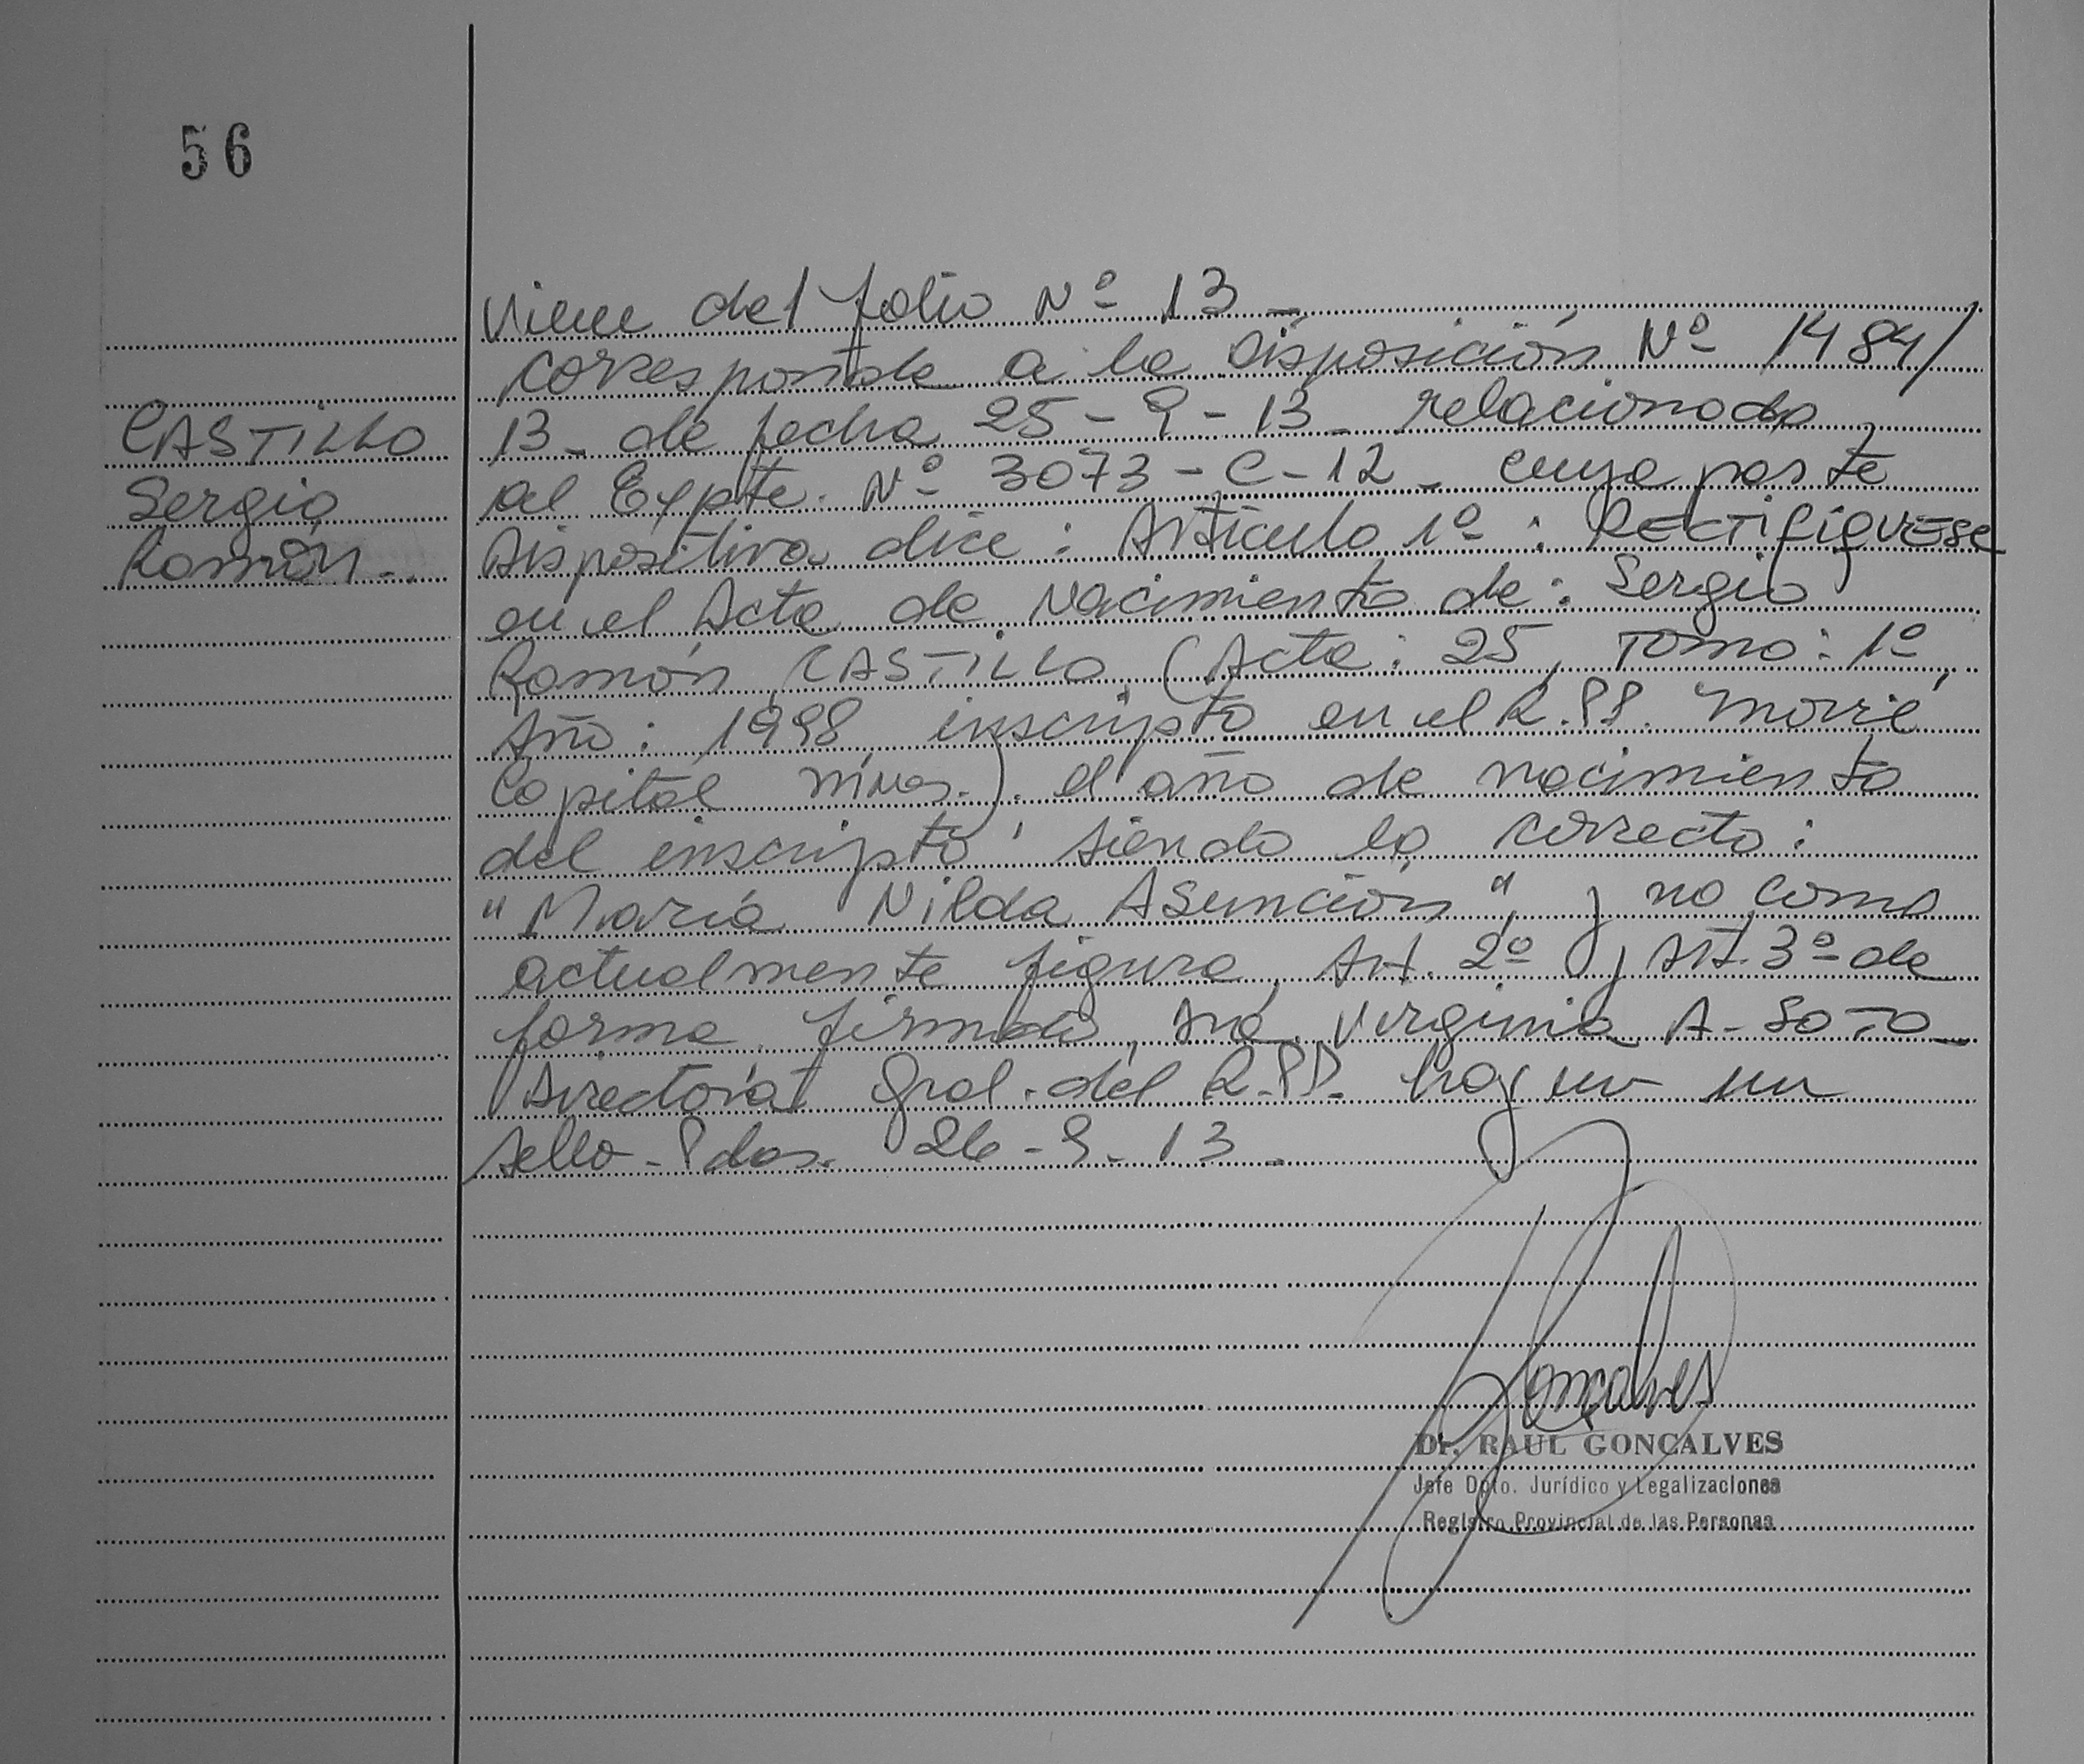 56
Viene del folio Nº 13 -
corresponde a la Disposición Nº 1484/
CASTILLO
13 - de fecha 25 - 9 - 13 - relacionada
Sergio
al Expte. Nº 3073 - C - 12 - cuya parte
Ramón -
Dispositiva dice : Artículo 1º : RECTIFIQUESE
en el Acta de Nacimiento de : Sergio
Ramón CASTILLO (Acta : 25, Tomo : 1º,
Año : 1998 inscripto en el R.PP.
Capital Mnes.) el año de nacimiento
del inscripto, siendo lo correcto :
"María Nilda Asunción", y no como
actualmente figura, Art. 2º y Art. 3º de
forma firmada, Virginia A - SOTO -
Directora Gral. del R.PP. hay un
sello - Pdas. 26 - 9 - 13 -
Gonçalves
Dr. RAUL GONÇALVES
Jefe Dpto. Jurídico y Legalizaciones
Registro Provincial de las Personas